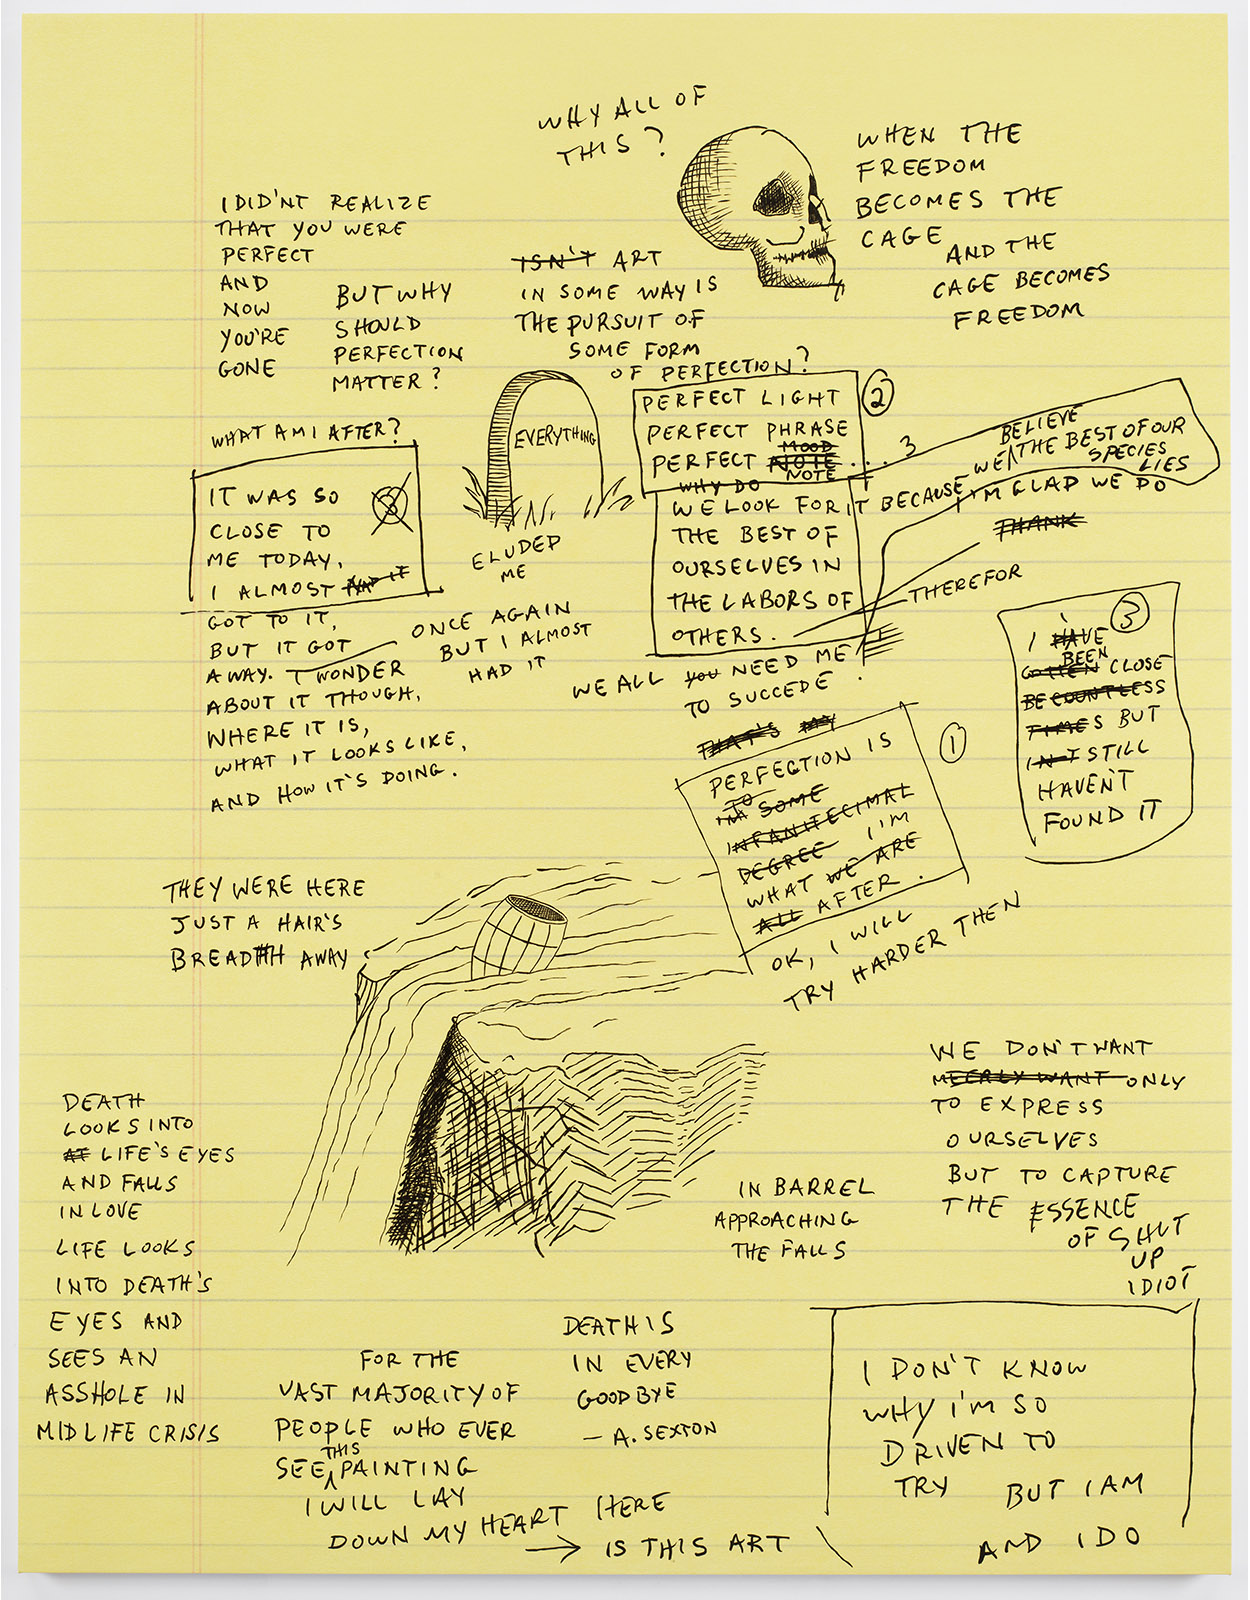 WHY ALL OF
THIS?
WHEN THE
FREEDOM
BECOMES THE
CAGE
AND THE
CAGE BECOMES
FREEDOM
I DID'NT REALIZE
THAT YOU WERE
PERFECT
AND
NOW
YOU'RE
GONE
BUT WHY
SHOULD
PERFECTION
MATTER?
ISN'T ART
IN SOME WAY IS
THE PURSUIT OF
SOME FORM
OF PERFECTION?
WHAT AM I AFTER?
IT WAS SO
CLOSE TO
ME TODAY,
I ALMOST HAD IT
GOT TO IT,
BUT IT GOT
AWAY. I WONDER
ABOUT IT THOUGH,
WHERE IT IS,
WHAT IT LOOKS LIKE,
AND HOW IT'S DOING.
EVERYTHING
ELUDED
ME
ONCE AGAIN
BUT I ALMOST
HAD IT
2
PERFECT LIGHT
PERFECT PHRASE
MOOD
PERFECT NOTE ... 3
WHY DO NOTE
WE LOOK FOR IT BECAUSE WE THE BEST OF OUR
BELIEVE
SPECIES
LIES
THE BEST OF
OURSELVES IN
THE LABORS OF
OTHERS.
I'M GLAD WE DO
THANK
THEREFOR
WE ALL YOU NEED ME
TO SUCCEDE.
3
I HAVE
BEEN
GOTTEN CLOSE
BE COUNTLESS
TIMES BUT
IN I STILL
HAVEN'T
FOUND IT
THAT'S MY
1
PERFECTION IS
TO
IN A SOME
INFANITECIMAL
DEGREE I'M
WHAT WE ARE
ALL AFTER.
OK, I WILL
TRY HARDER THEN
THEY WERE HERE
JUST A HAIR'S
BREADTH AWAY
DEATH
LOOKS INTO
AT LIFE'S EYES
AND FALLS
IN LOVE
LIFE LOOKS
INTO DEATH'S
EYES AND
SEES AN
ASSHOLE IN
MIDLIFE CRISIS
IN BARREL
APPROACHING
THE FALLS
WE DON'T WANT
MEERLY WANT ONLY
TO EXPRESS
OURSELVES
BUT TO CAPTURE
THE ESSENCE
OF SHUT
UP
IDIOT
FOR THE
VAST MAJORITY OF
PEOPLE WHO EVER
THIS
SEE PAINTING
I WILL LAY
DOWN MY HEART HERE
→ IS THIS ART
DEATH IS
IN EVERY
GOODBYE
— A. SEXTON
I DON'T KNOW
WHY I'M SO
DRIVEN TO
TRY BUT I AM
AND I DO